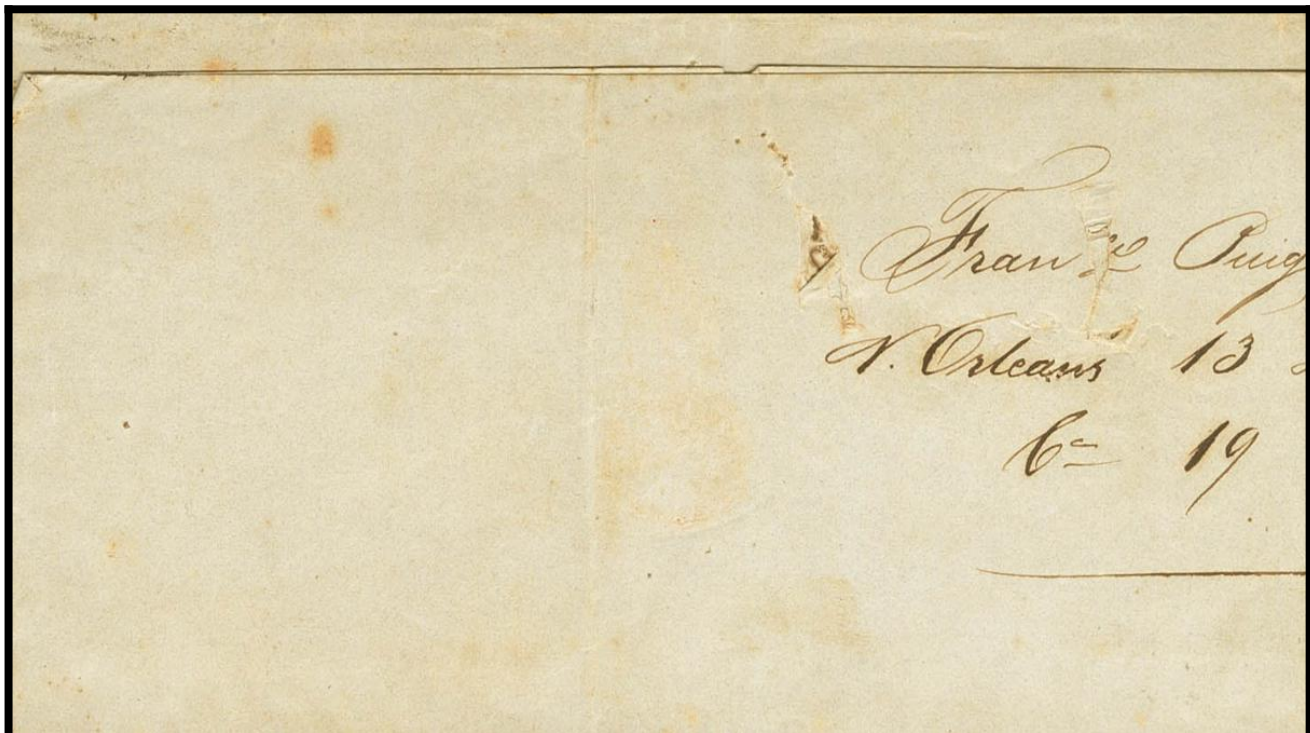 Fran^co Puig
N. Orleans 13
19